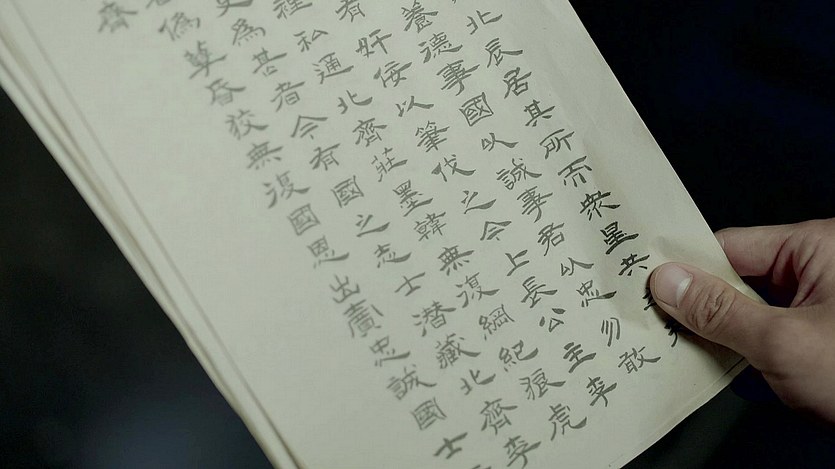 北辰居其所而衆星共
養德事國以誠事君以忠勿敢
有奸佞以筆伐之今上長公主李
裡私通北齊莊墨韓無復綱紀狼虎
為甚者今有國之志士潜藏北齊李
偽孽昏狡無復國恩出賣忠誠國士
齊